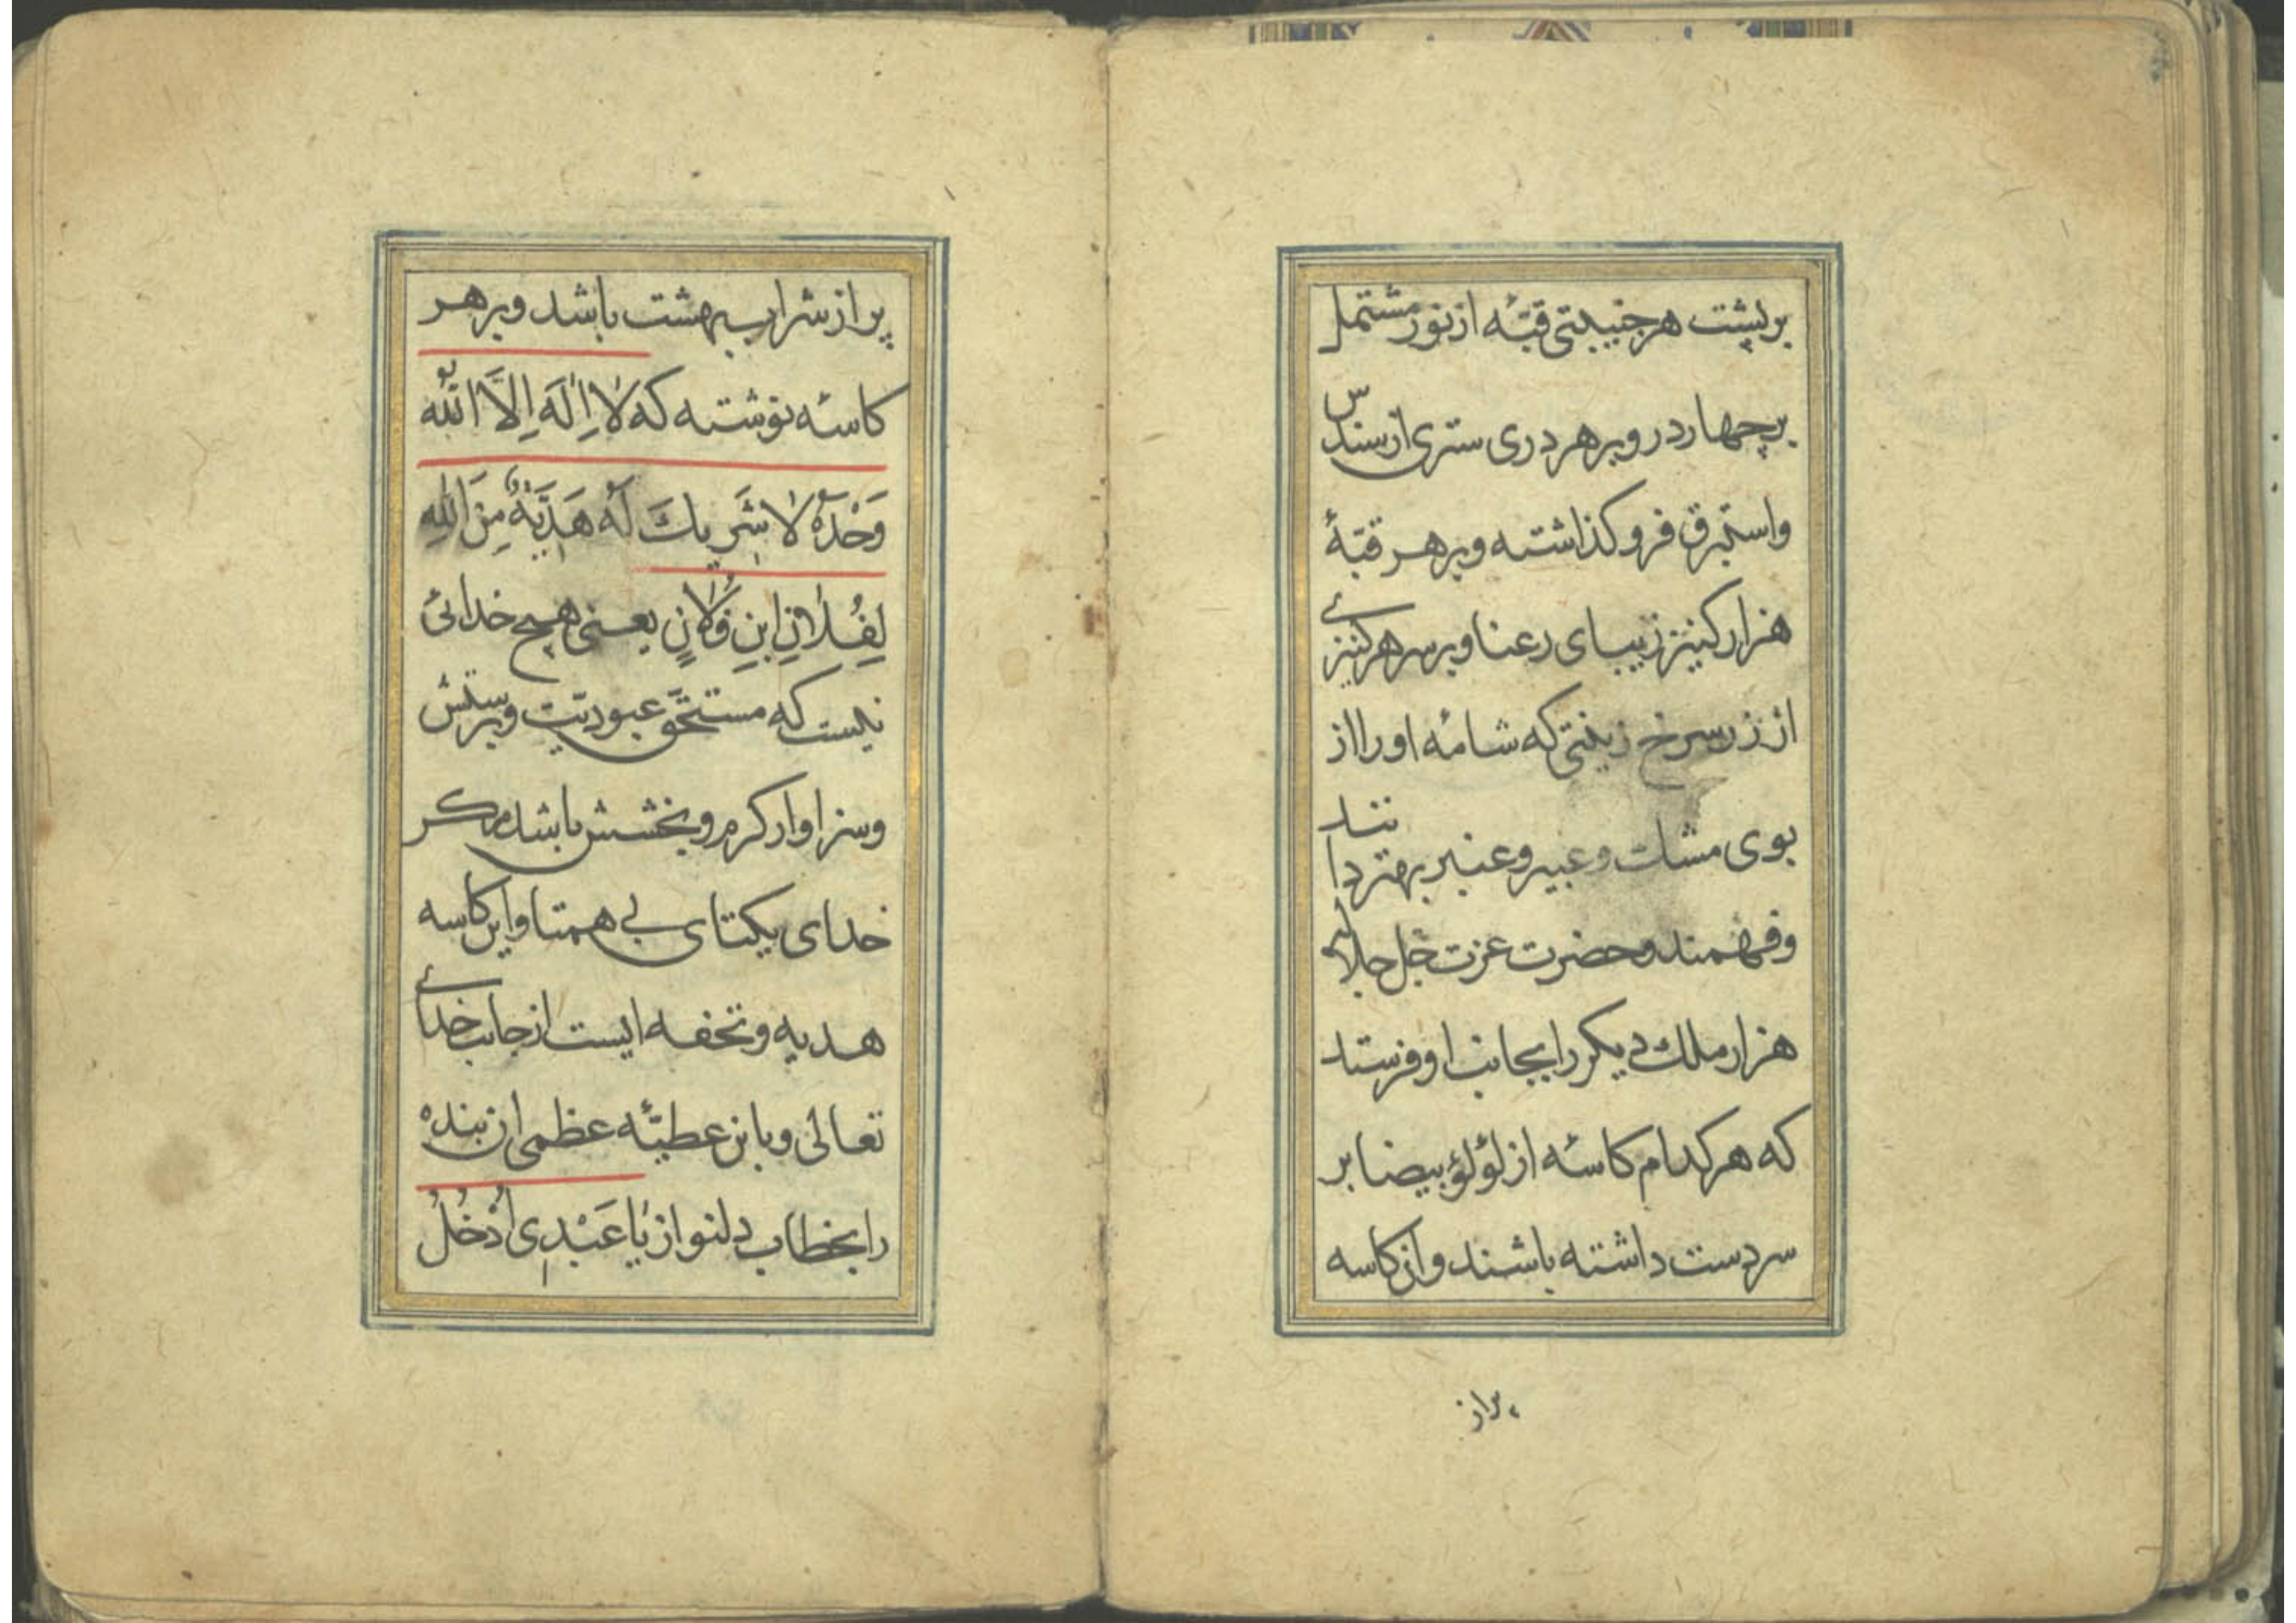 بر پشت هر جنیبتی قبّهٔ از نور مشتمل
بر چهار در و بر هر دری ستری از سندس
و استبرق فرو کذاشته و بر هر قبّهٔ
هزار کنیز زیبای رعنا و بر سر هر کنیزے
از زر سرخ زینتی که شامهٔ او را از
بوی مشک و عبیر و عنبر بهتر دانند
و فهمند و حضرت عزت جل جلاله
هزار ملک دیکر را بجانب او فرستد
که هر کدام کاسهٔ از لؤلؤ بیضا بر
سر دست داشته باشند و آن کاسه
پر از
پر از شراب بهشت باشد و بر هر
کاسهٔ نوشته که لَا اِلٰهَ اِلَّا اللّٰهُ
وَحْدَهُ لَا شَرِیكَ لَهُ هَدِیَّةٌ مِنَ اللّٰهِ
لِفُلَانِ ابْنِ فُلَانٍ یعنی هیچ خدائی
نیست که مستحقّ عبودیّت و پرستش
و سزاوار کرم و بخشش باشد مکر
خدای یکتای بی همتا و این کاسه
هدیه و تحفه ایست از جانب خداے
تعالی و باین عطیّهٔ عظمی ان بنده
را بخطاب دلنواز یَا عَبْدِی اُدْخُلْ